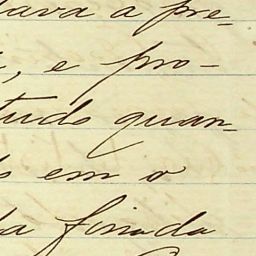 tava a pre-
, e pro-
tudo quan-
em o
finada